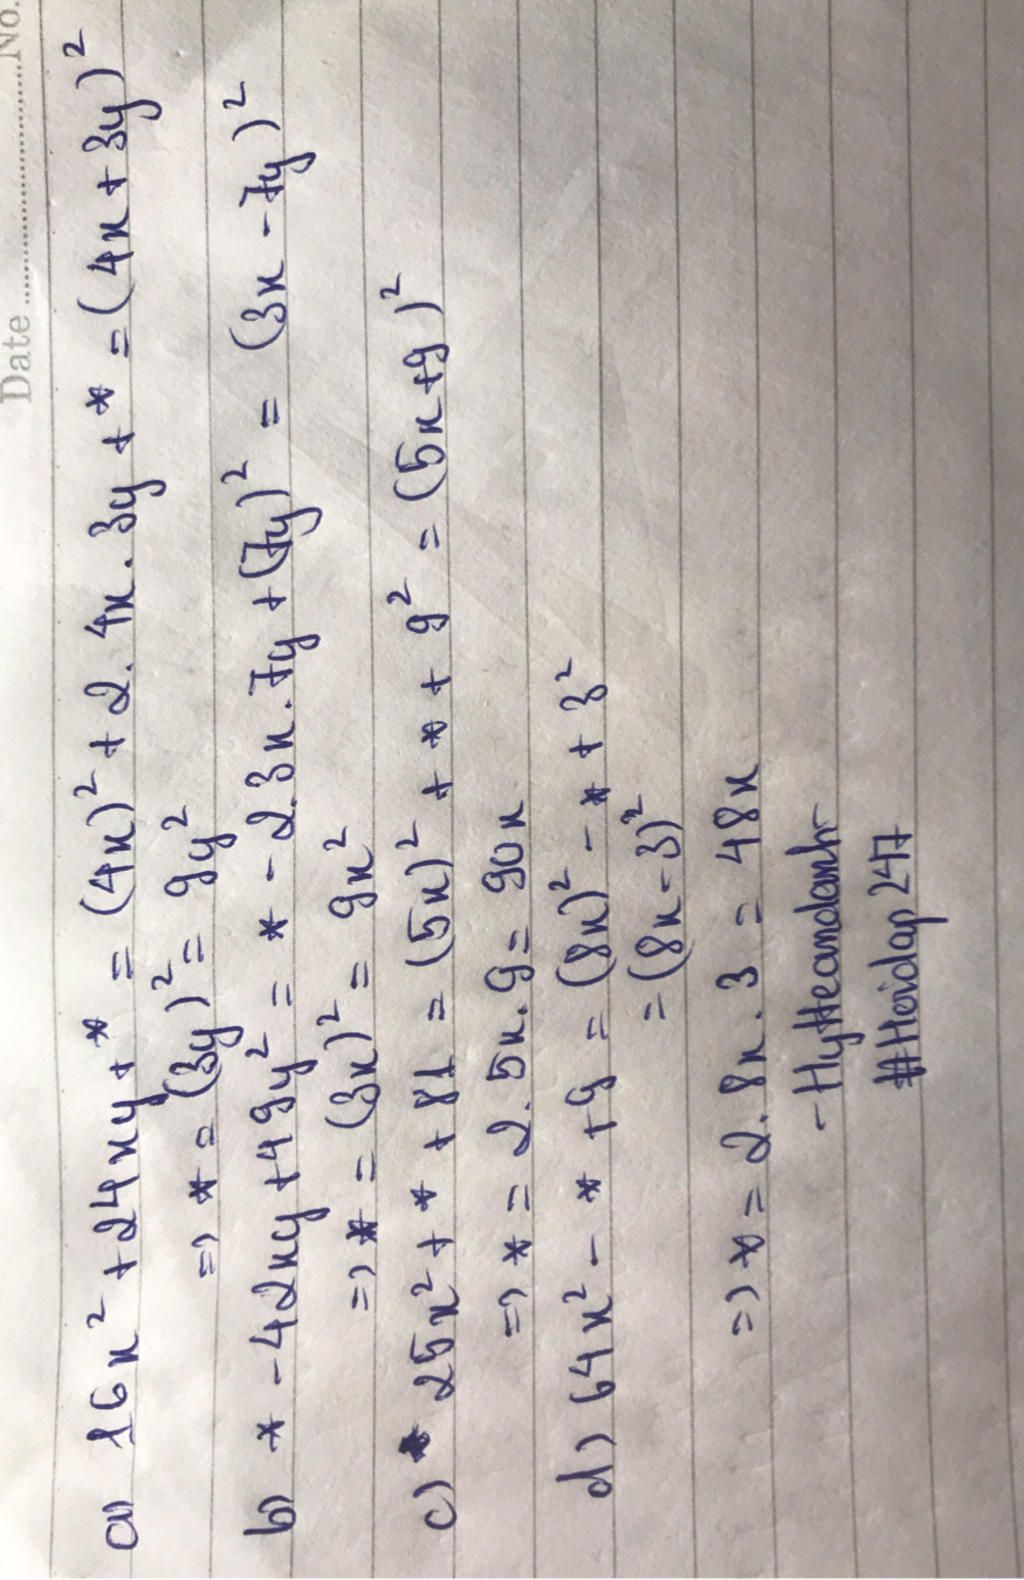 Date ........................ No.
a) 16x² + 24xy + * = (4x)² + 2. 4x. 3y + * = (4x + 3y)²
=> * = (3y)² = 9y²
b) * - 42xy + 49y² = * - 2.3x. 7y + (7y)² = (3x - 7y)²
=> * = (3x)² = 9x²
c) 25x² + * + 81 = (5x)² + * + 9² = (5x+9)²
=> * = 2. 5x. 9 = 90x
d) 64x² - * + 9 = (8x)² - * + 3²
= (8x - 3)²
=> * = 2. 8x. 3 = 48x
#Hoidap247